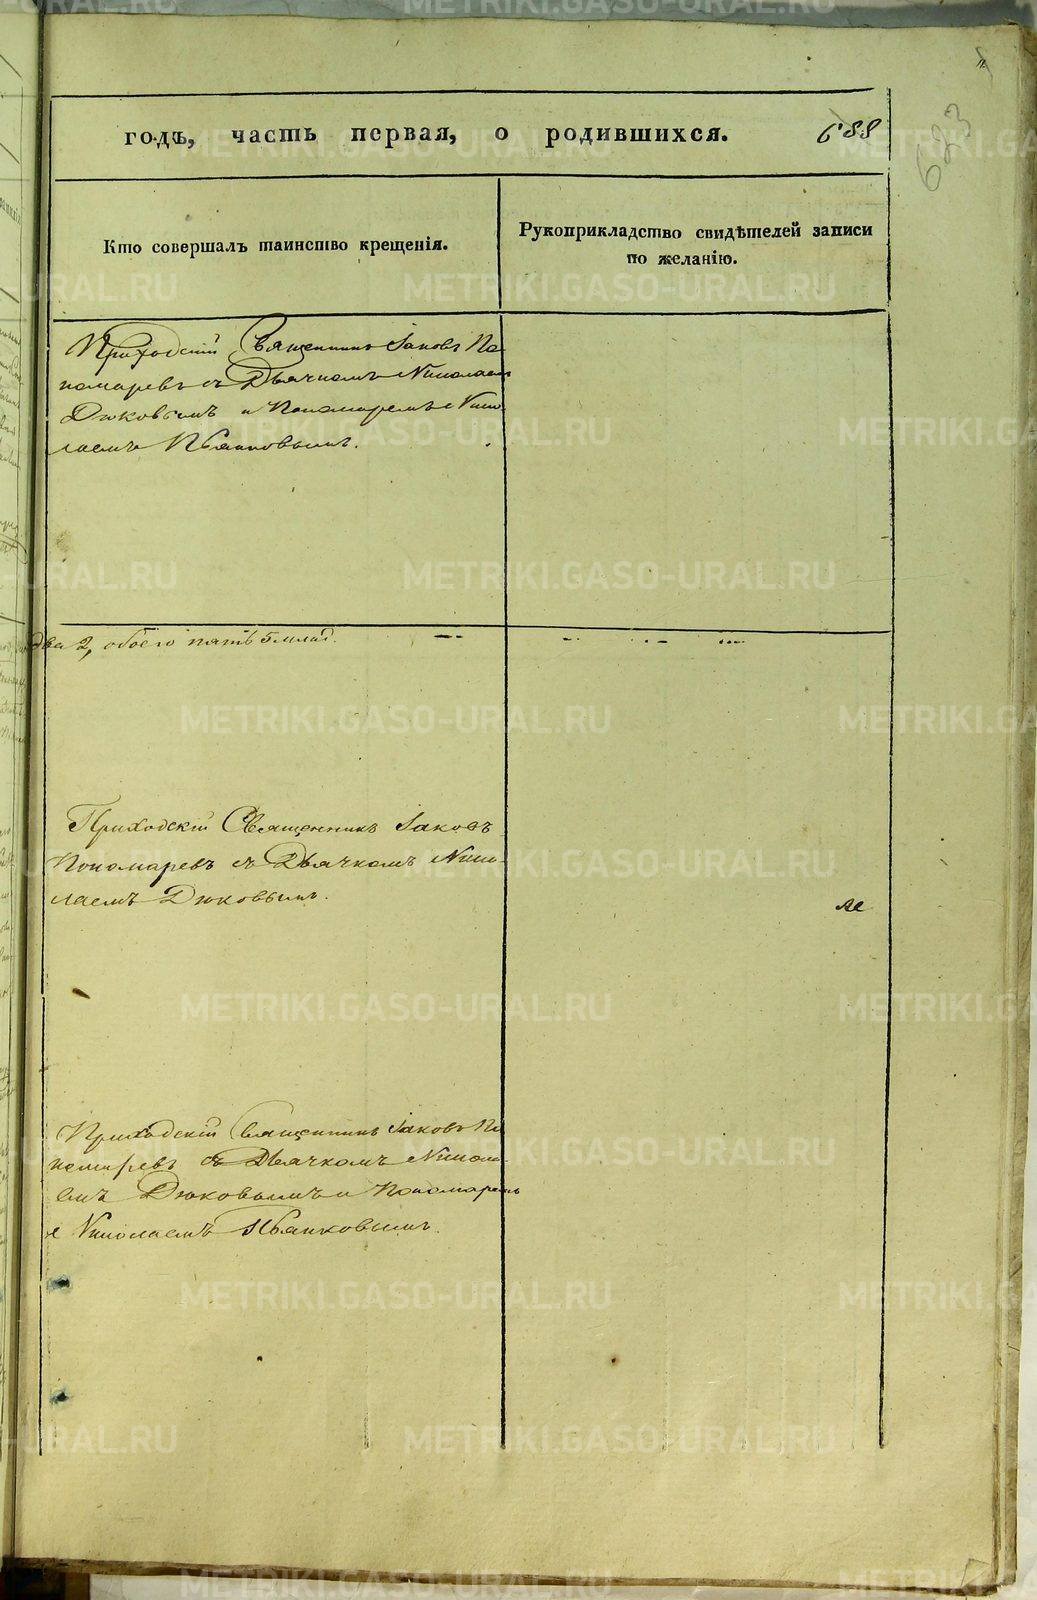 годъ, часть первая, о родившихся. 688
623
Кто совершалъ таинство крещенія.
Рукоприкладство свидѣтелей записи
по желанію.
Приходскій Священникъ Іаковъ По
номаревъ съ Дьячкомъ Николаем
Дюковымъ и Пономаремъ Нико
лаемъ Пьянковымъ.
два 2, обоего пять 5 млад.
Приходскій Священникъ Іаковъ
Пономаревъ съ Дьячкомъ Нико-
лаемъ Дюковымъ.
Приходскій Священникъ Іаковъ По
номаревъ съ Дьячкомъ Никола
емъ Дюковымъ и Пономаремъ
Николаемъ Пьянковымъ.
METRIKI.GASO-URAL.RU